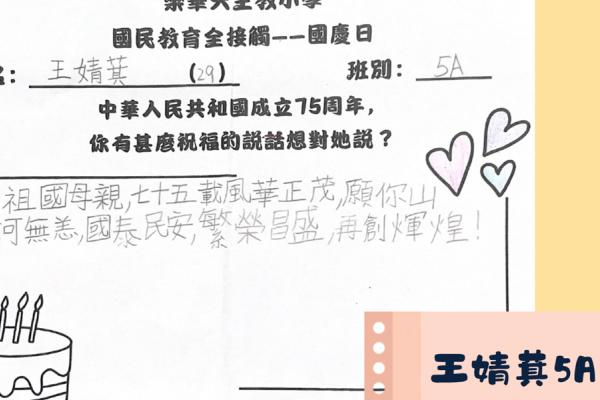 國民教育全接觸——國慶日
名: 王婧蓂 (29) 班別: 5A
中華人民共和國成立75周年,
你有甚麼祝福的說話想對她說?
祖國母親,七十五載風華正茂,願你山
河無恙,國泰民安,繁榮昌盛,再創輝煌!
王婧蓂5A